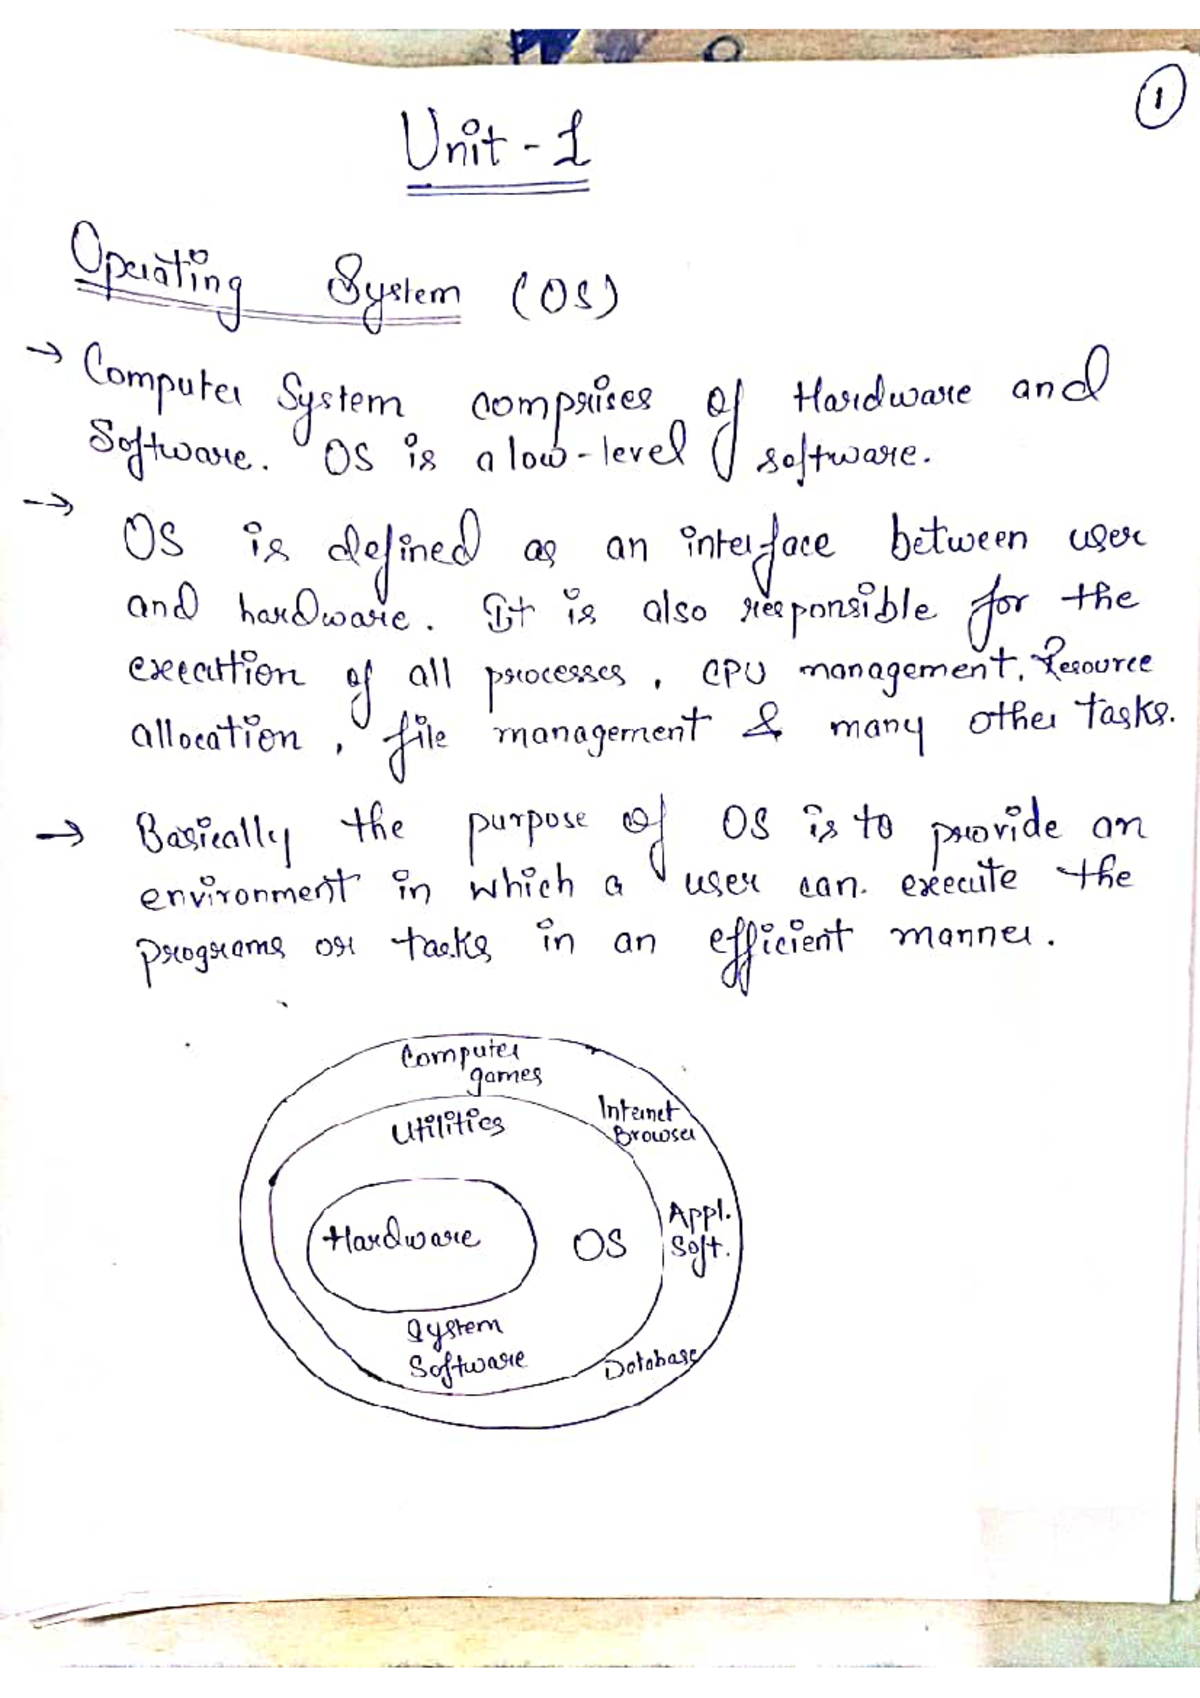 1
Unit - 1
Operating System (OS)
→ Computer System comprises of Hardware and
Software. OS is a low-level software.
→ OS is defined as an interface between user
and hardware. It is also responsible for the
execution of all processes, CPU management, Resource
allocation, file management & many other tasks.
→ Basically the purpose of OS is to provide an
environment in which a user can execute the
programs or tasks in an efficient manner.
Computer
games
Utilities
Internet
Browser
Hardware
OS
Appl.
Soft.
System
Software
Database